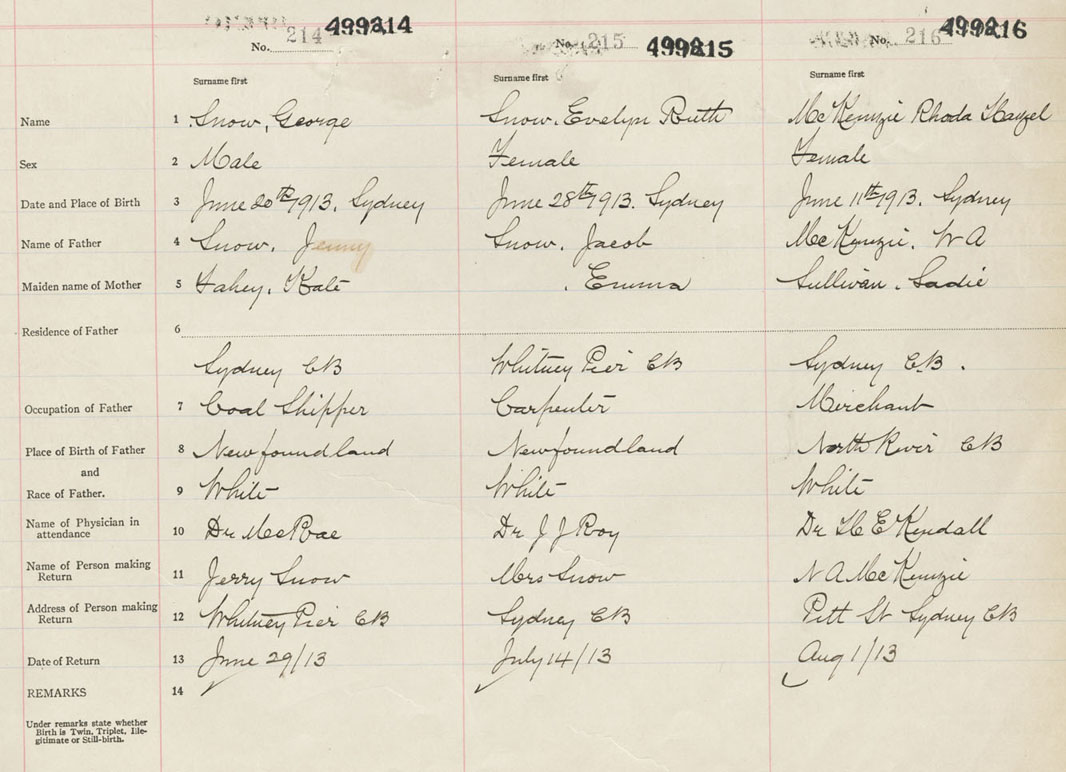 No. 214 499214 No. 215 499215 No. 216 499216
Surname first Surname first Surname first
Name 1 Snow, George Snow. Evelyn Ruth McKenzie Rhoda Hazel
Sex 2 Male Female Female
Date and Place of Birth 3 June 20th 1913. Sydney June 28th 1913. Sydney June 11th 1913. Sydney
Name of Father 4 Snow. Jenny Snow. Jacob McKenzie. W A
Maiden name of Mother 5 Fahey. Kate . Emma Sullivan. Sadie
Residence of Father 6
Sydney CB Whitney Pier CB Sydney C.B.
Occupation of Father 7 Coal Shipper Carpenter Merchant
Place of Birth of Father 8 Newfoundland Newfoundland North River CB
and
Race of Father. 9 White White White
Name of Physician in
attendance 10 Dr McRae Dr J J Roy Dr H E Kendall
Name of Person making
Return 11 Jerry Snow Mrs Snow N A McKenzie
Address of Person making
Return 12 Whitney Pier CB Sydney CB Pitt St Sydney CB
Date of Return 13 June 29/13 July 14/13 Aug 1/13
REMARKS 14
Under remarks state whether
Birth is Twin, Triplet, Ille-
gitimate or Still-birth.